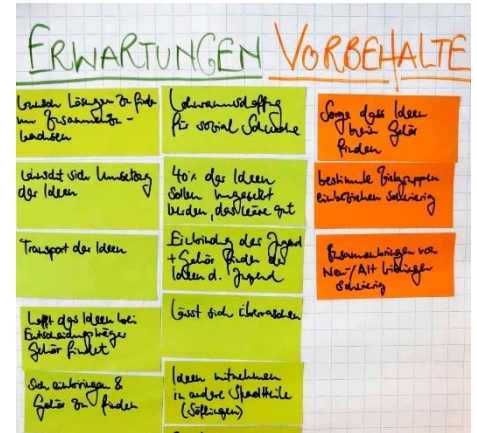 ERWARTUNGEN
VORBEHALTE
Wunsch Lösungen zu finden
um Zusammenzu-
wachsen
wünscht sich Umsetzung
der Ideen
Transport der Ideen
Hofft das Ideen bei
Entscheidungsträger
Gehör findet
Sich einbringen &
Gehör zu finden
Wohnraumschaffung
für sozial Schwache
40% der Ideen
sollen umgesetzt
werden, das wäre gut
Einbindung der Jugend
+ Gehör finden der
Ideen d. Jugend
Lässt sich überraschen
Ideen mitnehmen
in andere Stadtteile
(Söflingen)
Sorge dass Ideen
kein Gehör
finden
bestimmte Zielgruppen
einbeziehen schwierig
Zusammenbringen von
Neu-/Alt
schwierig